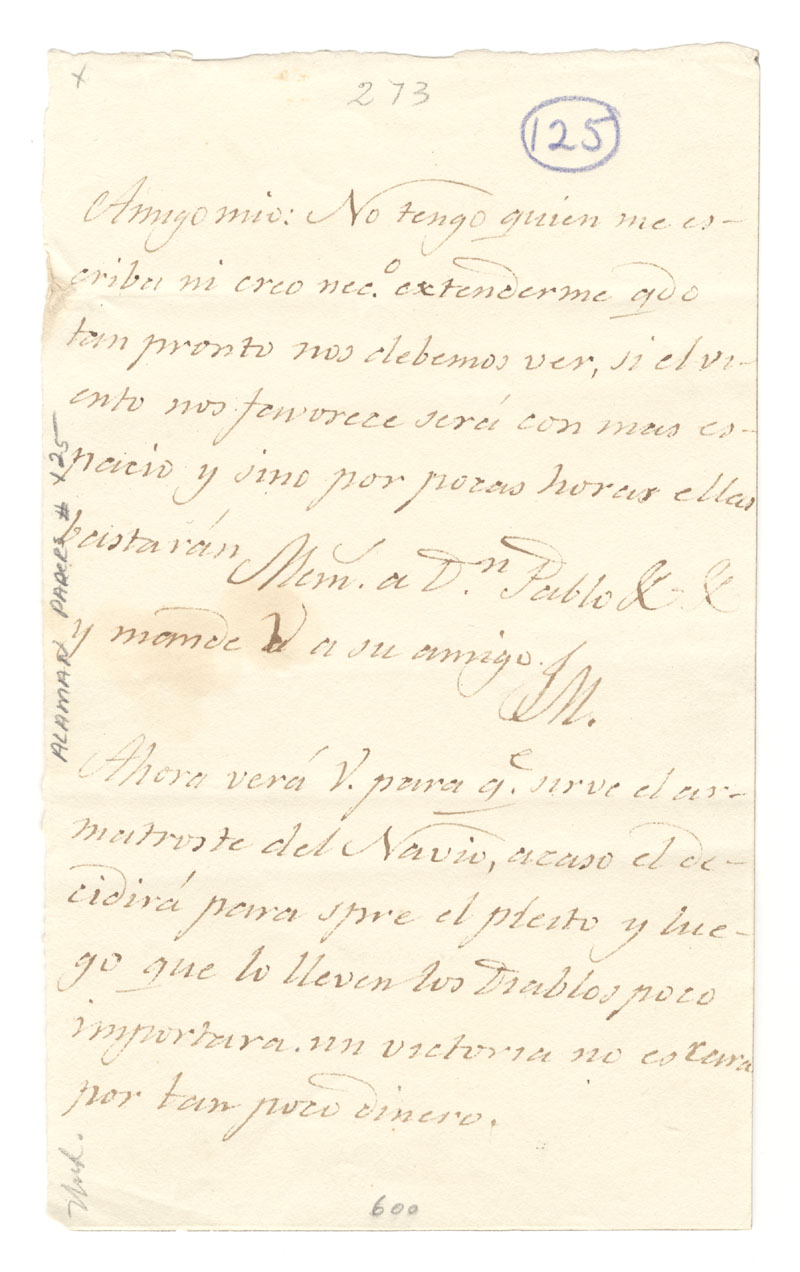 x
273
125
Amigo mio: No tengo quien me es-
criba ni creo nec.o extenderme qdo
tan pronto nos debemos ver, si el vi-
ento nos favorece será con mas es-
pacio y sino por pocas horas ellas
bastarán Mem. a D.n Pablo & &
y mande V a su amigo.
JM.
Ahora verá V. para q.e sirve el ar-
matroste del Navio, acaso el de-
cidirá para spre el pleito y lue-
go que lo lleven los Diablos poco
importara. un victoria no es cara
por tan poco dinero.
600
ALAMAN PAPERS # 125